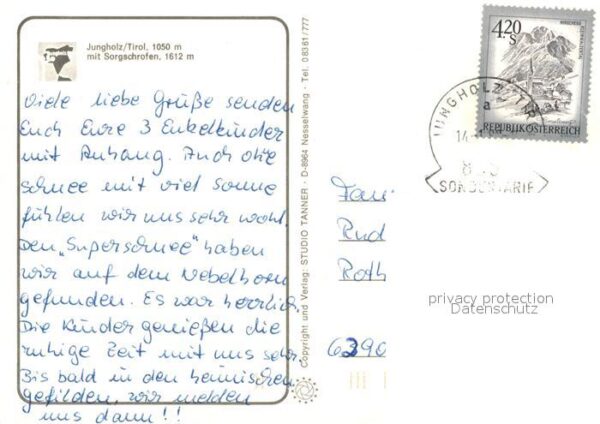 Jungholz/Tirol, 1050 m
mit Sorgschrofen, 1612 m
Viele liebe Grüße senden
Euch Eure 3 Enkelkinder
mit Anhang. Auch ohne
schnee mit viel Sonne
fühlen wir uns sehr wohl.
Den „Superschnee" haben
wir auf dem Nebelhorn
gefunden. Es war herrlich.
Die Kinder genießen die
ruhige Zeit mit uns sehr.
Bis bald in den heimischen
gefilden, wir melden
uns dann!!
Copyright und Verlag: STUDIO TANNER · D-8964 Nesselwang · Tel. 08361/777
4.20 S
REPUBLIK ÖSTERREICH
JUNGHOLZ, TIR
a
14-
SONDERTARIF
Fam
Rud
Roth
6390
privacy protection
Datenschutz